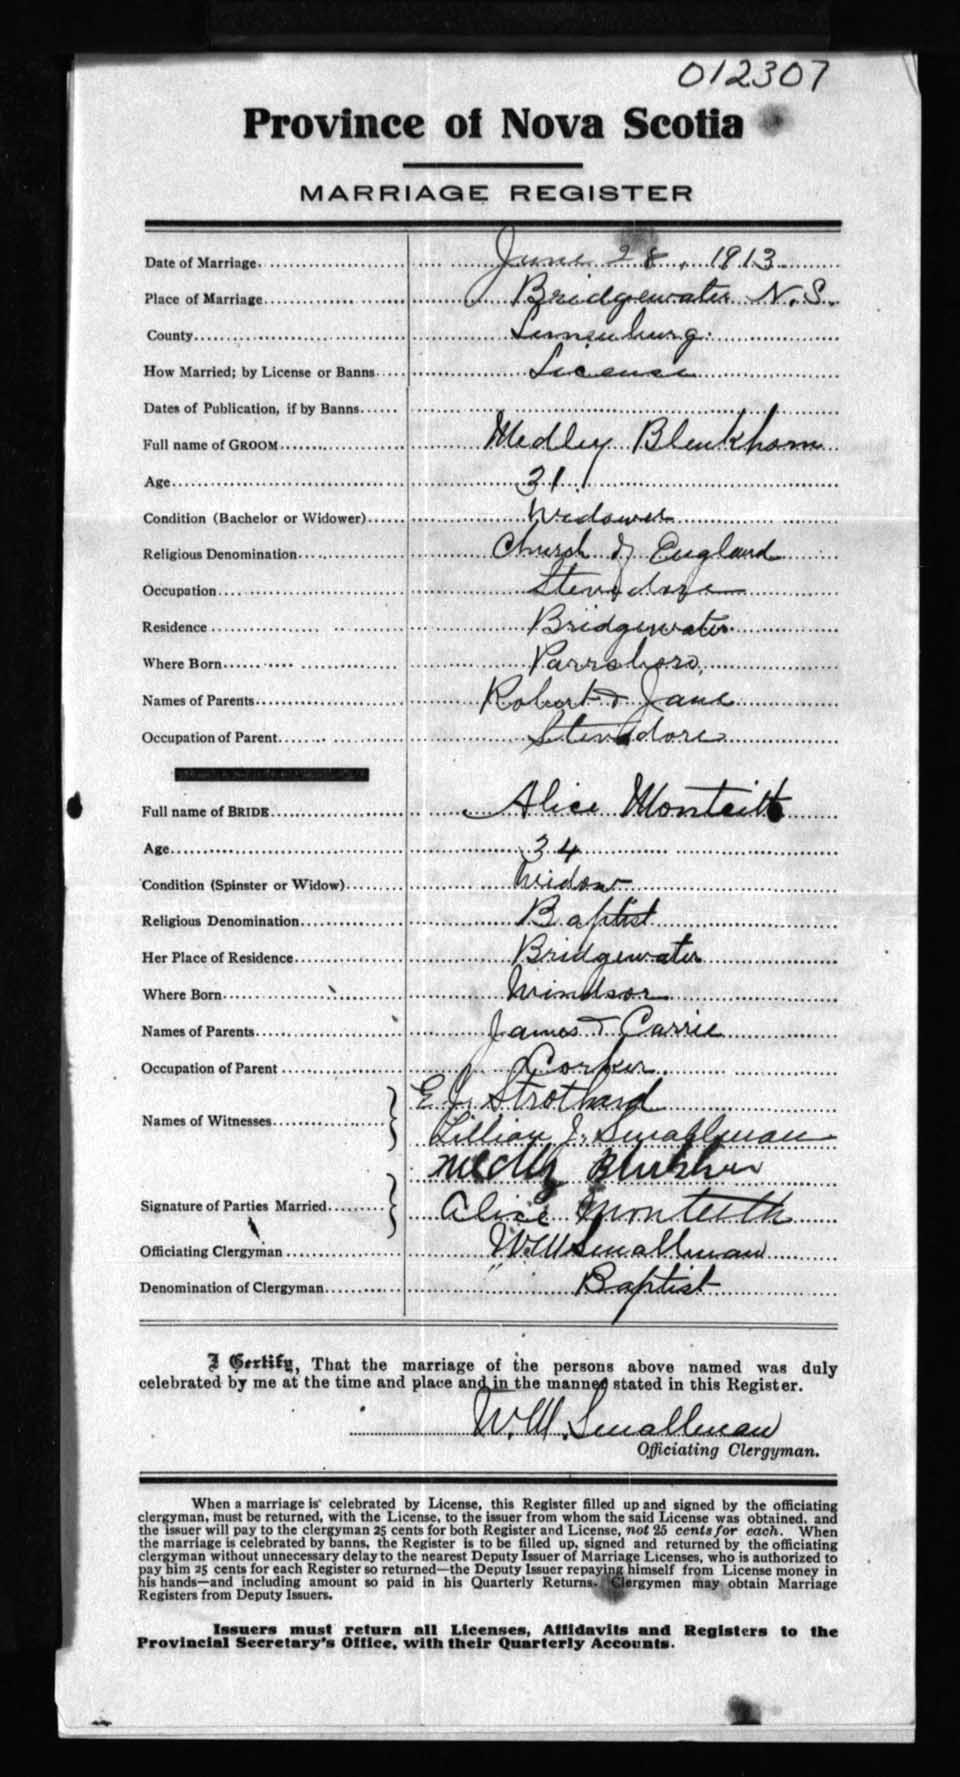 012307
Province of Nova Scotia
MARRIAGE REGISTER
Date of Marriage June 28, 1913
Place of Marriage Bridgewater N.S.
County Lunenburg
How Married; by License or Banns License
Dates of Publication, if by Banns
Full name of GROOM Medley Blenkhorn
Age 31
Condition (Bachelor or Widower) Widower
Religious Denomination Church of England
Occupation Stevedore
Residence Bridgewater
Where Born Parrsboro
Names of Parents Robert & Jane
Occupation of Parent Stevedore
Full name of BRIDE Alice Monteith
Age 34
Condition (Spinster or Widow) Widow
Religious Denomination Baptist
Her Place of Residence Bridgewater
Where Born Windsor
Names of Parents James & Carrie
Occupation of Parent
Names of Witnesses E. J. Strothard
Lillian J. Smallman
Medly
Signature of Parties Married Alice Monteith
Officiating Clergyman W. M. Smallman
Denomination of Clergyman Baptist
I Certify, That the marriage of the persons above named was duly
celebrated by me at the time and place and in the manner stated in this Register.
W. M. Smallman
Officiating Clergyman.
When a marriage is celebrated by License, this Register filled up and signed by the officiating
clergyman, must be returned, with the License, to the issuer from whom the said License was obtained, and
the issuer will pay to the clergyman 25 cents for both Register and License, not 25 cents for each. When
the marriage is celebrated by banns, the Register is to be filled up, signed and returned by the officiating
clergyman without unnecessary delay to the nearest Deputy Issuer of Marriage Licenses, who is authorized to
pay him 25 cents for each Register so returned—the Deputy Issuer repaying himself from License money in
his hands—and including amount so paid in his Quarterly Returns. Clergymen may obtain Marriage
Registers from Deputy Issuers.
Issuers must return all Licenses, Affidavits and Registers to the
Provincial Secretary's Office, with their Quarterly Accounts.